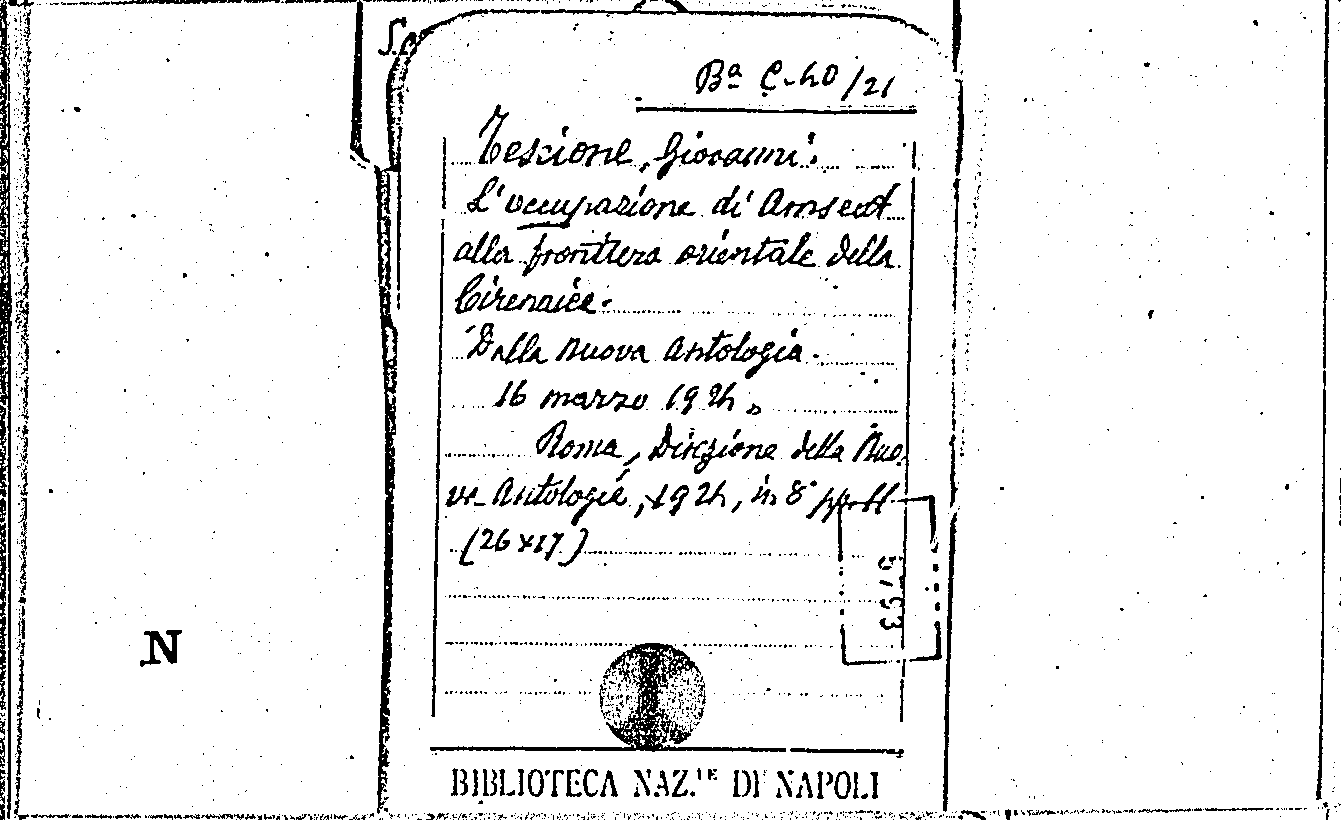 Bª C.40/21
Tescione, Giovanni.
L'occupazione di Amseat
alla frontiera orientale della
Cirenaica.
Dalla Nuova Antologia.
16 marzo 1924.
Roma, Direzione della Nuo
va Antologia, 1924, in 8°
(26x17)
5793
N
BIBLIOTECA NAZ.IE DI NAPOLI